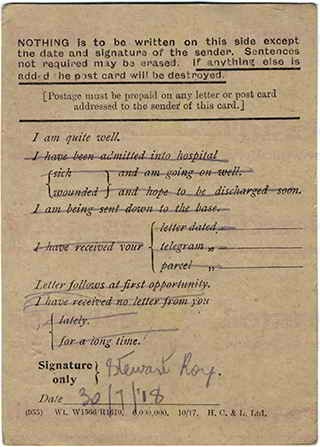 NOTHING is to be written on this side except
the date and signature of the sender. Sentences
not required may be erased. If anything else is
added the post card will be destroyed.
[Postage must be prepaid on any letter or post card
addressed to the sender of this card.]
I am quite well.
I have been admitted into hospital
sick and am going on well.
wounded and hope to be discharged soon.
I am being sent down to the base.
letter dated „
I have received your telegram „
parcel „
Letter follows at first opportunity.
I have received no letter from you
lately.
for a long time.
Signature only Stewart Roy.
Date 30/7/18
(955) Wt. W1566/R1619. 6,000,000. 10/17. H. C. & L., Ltd.